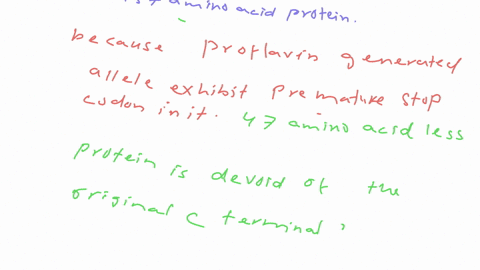 amino acid protein.
because proflavin generated
allele exhibit premature stop
codon in it. 47 amino acid less
protein is devoid of the
original C terminal